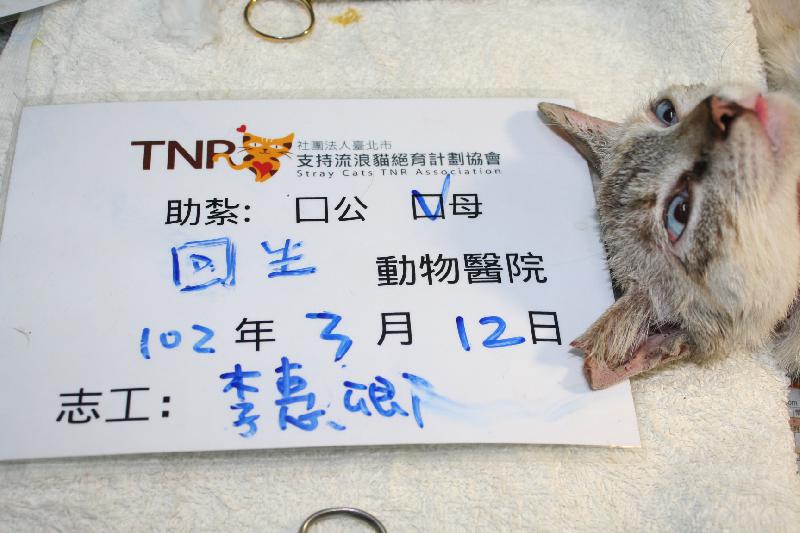 TNR
社團法人臺北市
支持流浪貓絕育計劃協會
Stray Cats TNR Association
助紮: 口公 口母
回生 動物醫院
102年 3月 12日
志工: 李惠卿